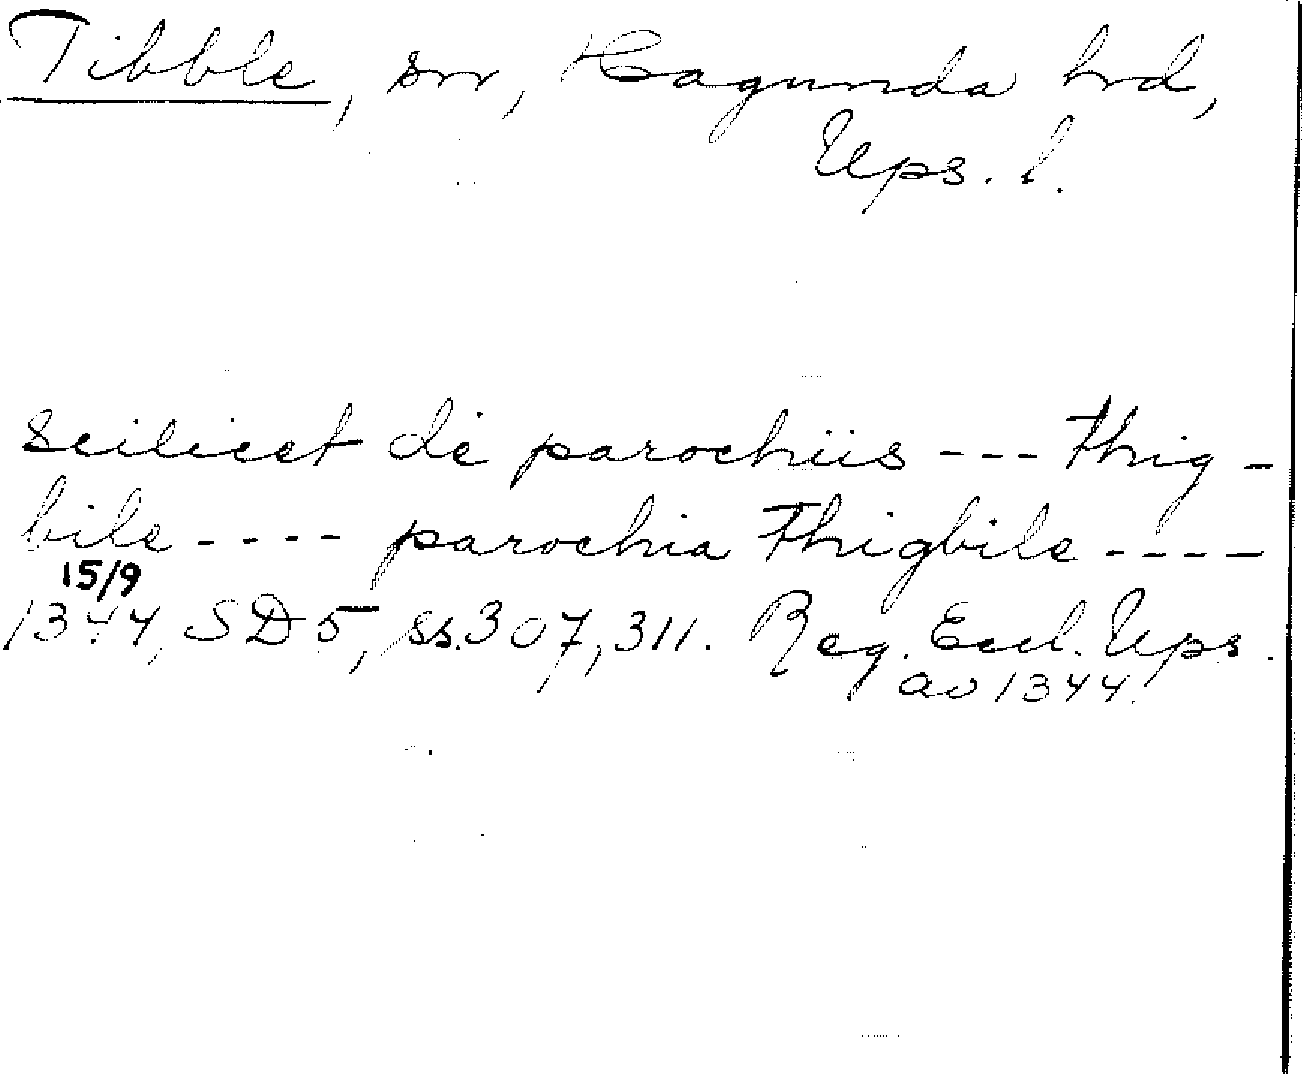 Tibble, sn, Hagunda hrd,
Ups. l.
scilicet de parochiis --- Thig-
bile ---- parochia Thigbile ----
15/9
1344, SD 5, ss. 307, 311. Reg. Eccl. Ups.
av 1344.